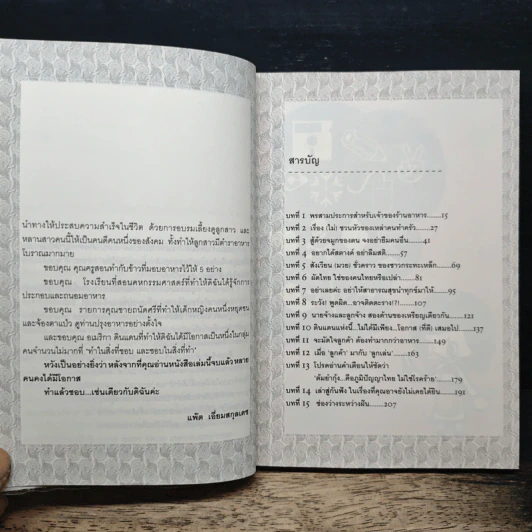 นำทางให้ประสบความสำเร็จในชีวิต ด้วยการอบรมเลี้ยงดูลูกสาว และ
หลานสาวคนนี้ให้เป็นคนดีคนหนึ่งของสังคม ทั้งทำให้ลูกสาวมีตำราอาหาร
โบราณมากมาย
ขอบคุณ คุณครูสอนทำกับข้าวที่มอบอาหารไว้ให้ 5 อย่าง
ขอบคุณ โรงเรียนที่สอนคหกรรมศาสตร์ที่ทำให้ดิฉันได้รู้จักการ
ประกอบและถนอมอาหาร
ขอบคุณ รายการคุณชายถนัดศรีที่ทำให้เด็กหญิงคนหนึ่งหยุดซน
และจ้องตาแป๋ว ดูท่านปรุงอาหารอย่างตั้งใจ
และขอบคุณ อเมริกา ดินแดนที่ทำให้ดิฉันได้มีโอกาสเป็นหนึ่งในกลุ่ม
คนจำนวนไม่มากที่ "ทำในสิ่งที่ชอบ และชอบในสิ่งที่ทำ"
หวังเป็นอย่างยิ่งว่า หลังจากที่คุณอ่านหนังสือเล่มนี้จบแล้ว หลาย
คนคงได้มีโอกาส
ทำแล้วชอบ...เช่นเดียวกับดิฉันค่ะ
แพ้ต เอี่ยมสกุลเดช
สารบัญ
บทที่ 1 พรสามประการสำหรับเจ้าของร้านอาหาร.....15
บทที่ 2 เรื่อง (ไม่) ชวนหัวของเหล่าคนทำครัว.......27
บทที่ 3 สู้ด้วยจมูกของตน จงอย่ายืมคนอื่น......41
บทที่ 4 อยากได้สตางค์ อย่าลืมสติ.......55
บทที่ 5 สังเวียน (มวย) ชั่วคราว ของชาวกระทะเหล็ก......69
บทที่ 6 ผัดไทย ใช่ของคนไทยหรือเปล่า......81
บทที่ 7 อย่าเลยค่ะ อย่าให้สาธารณสุขนำทุกข์มาให้.......93
บทที่ 8 ระวัง! พูดผิด...อาจติดตะราง!?!.......107
บทที่ 9 นายจ้างและลูกจ้าง สองด้านของเหรียญเดียวกัน.......121
บทที่ 10 ดินแดนแห่งนี้...ไม่ได้มีเพียง...โอกาส (ที่ดี) เสมอไป......137
บทที่ 11 จะมัดใจลูกค้า ต้องทำมากกว่าอาหาร.......149
บทที่ 12 เมื่อ 'ลูกค้า' มากับ 'ลูกเล่น'......163
บทที่ 13 โปรดอ่านคำเตือนให้ชัดว่า
'ต้มยำกุ้ง...คือภูมิปัญญาไทย ไม่ใช่โรคร้าย'.......179
บทที่ 14 เล่าสู่กันฟัง ในเรื่องที่คุณอาจยังไม่เคยได้ยิน.......191
บทที่ 15 ช่องว่างระหว่างฝัน.......207